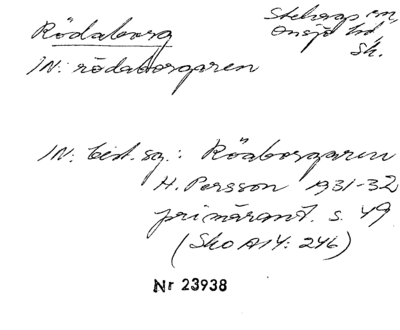 Rödaborg
Stehags sn,
Onsjö hd
Sk.
IN: rödaborgaren
IN: best. sg.: Rödborgaren
H. Persson 1931-32
primärant. s. 49
(Sko A14: 246)
Nr 23938